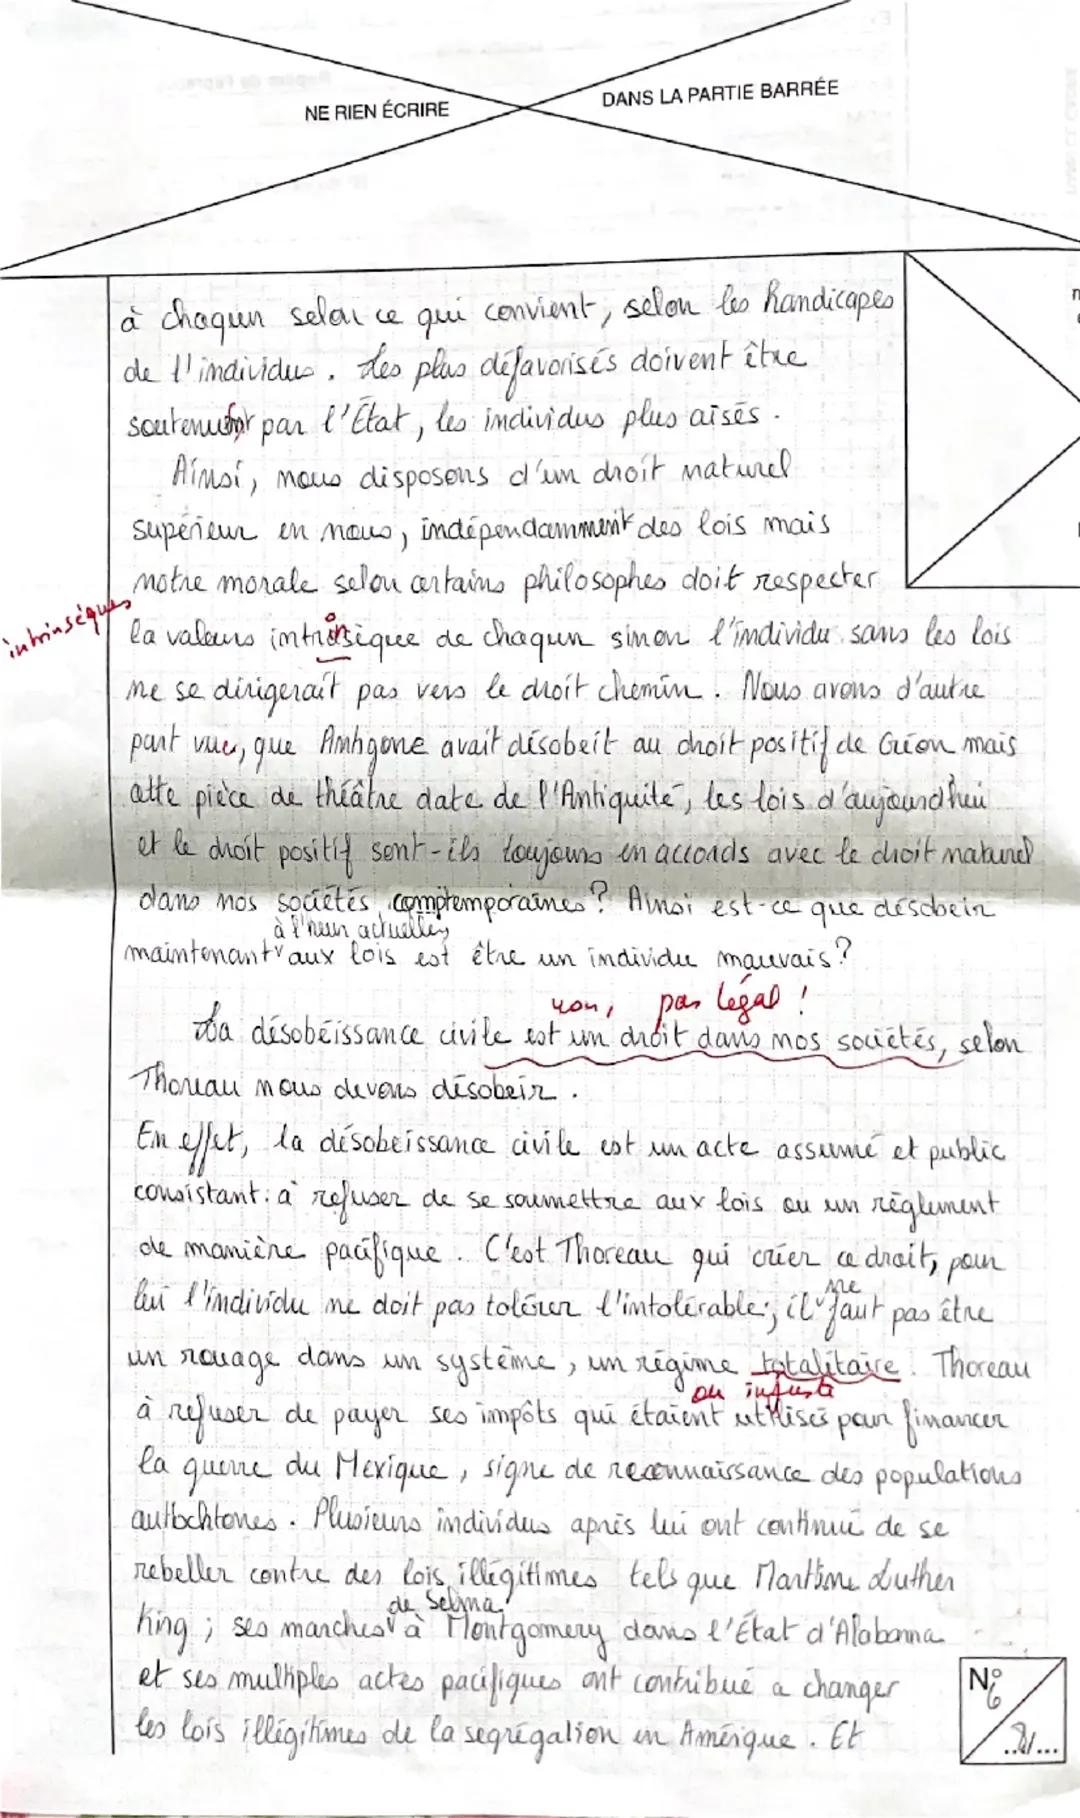 NE RIEN ÉCRIRE
DANS LA PARTIE BARRÉE
à chaqun selon ce qui convient, selon les handicapes
de l'individus. Les plus défavorisés doivent être
soutenu par l'État, les individus plus aisés.
Ainsi, nous disposons d'un droit naturel
supérieur en nous, indépendamment des lois mais
notre morale selon certains philosophes doit respecter
intrinsèques
la valeurs intrinsèque de chaqun sinon l'individu sans les lois
ne se dirigerait pas vers le droit chemin. Nous avons d'autre
part vue, que Antigone avait désobeit au droit positif de Créon mais
cette pièce de théâtre date de l'Antiquité, les lois d'aujourd'hui
et le droit positif sont-ils toujours en accords avec le droit naturel
dans nos sociétés comptemporaines? Ainsi est-ce que désobeir
à l'heure actuelles
maintenant aux lois est être un individu mauvais?
non, pas légal !
La désobéissance civile est un droit dans nos sociétés, selon
Thoreau nous devons désobeir.
En effet, la désobeissance civile est un acte assumé et public
consistant à refuser de se soumettre aux lois ou un règlement
de manière pacifique. C'est Thoreau qui créer ce droit, pour
ne
lui l'individu ne doit pas tolérer l'intolérable; il faut pas être
un rouage dans un système, un régime totalitaire. Thoreau
ou injuste
à refuser de payer ses impôts qui étaient utilisés pour financer
la guerre du Mexique, signe de reconnaissance des populations
autochtones. Plusieurs individus après lui ont continué de se
rebeller contre des lois illégitimes tels que Martine Luther
de Selma
King; ses marches à Montgomery dans l'État d'Alabama
et ses multiples actes pacifiques ont contribué a changer
les lois illégitimes de la segrégation en Amérique. Et
N°